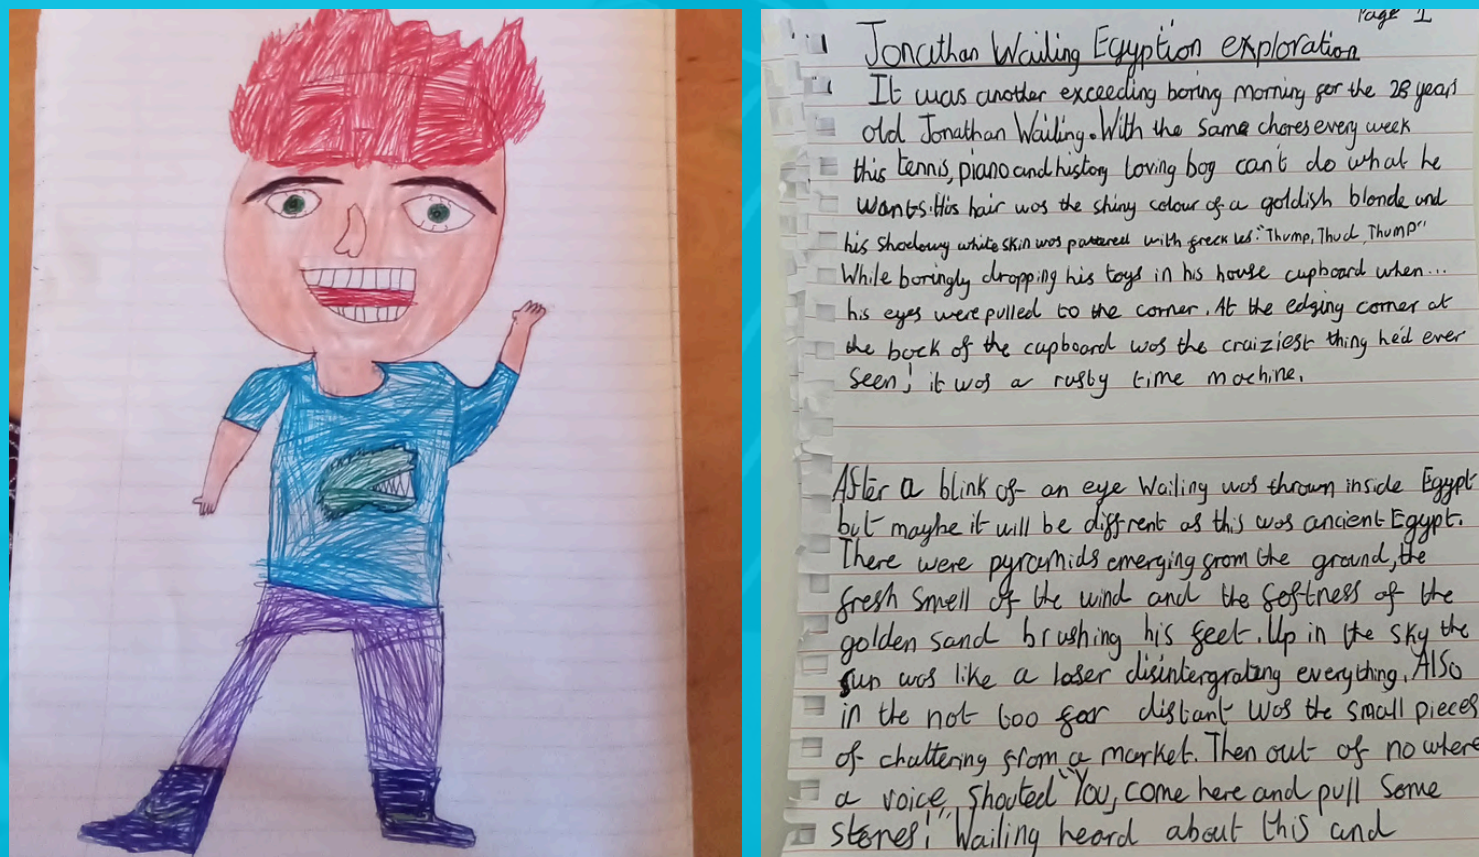 Page 1
Jonathan Wailing Egyption exploration
It was another exceeding boring morning for the 28 years
old Jonathan Wailing. With the same chores every week
this tennis, piano and history loving boy can't do what he
wants. His hair was the shiny colour of a goldish blonde and
his shadowy white skin was pattered with freckles. "Thump, Thud, Thump"
While boringly dropping his toys in his house cupboard when...
his eyes were pulled to the corner. At the edging corner at
the back of the cupboard was the craiziest thing he'd ever
seen! it was a rusty time machine.
After a blink of an eye Wailing was thrown inside Egypt
but maybe it will be diffrent as this was ancient Egypt.
There were pyramids emerging from the ground, the
fresh smell of the wind and the softness of the
golden sand brushing his feet. Up in the sky the
sun was like a laser disintergrating everything. Also
in the not too far distant was the small pieces
of chattering from a market. Then out of no where
a voice shouted "You, come here and pull some
stones!" Wailing heard about this and